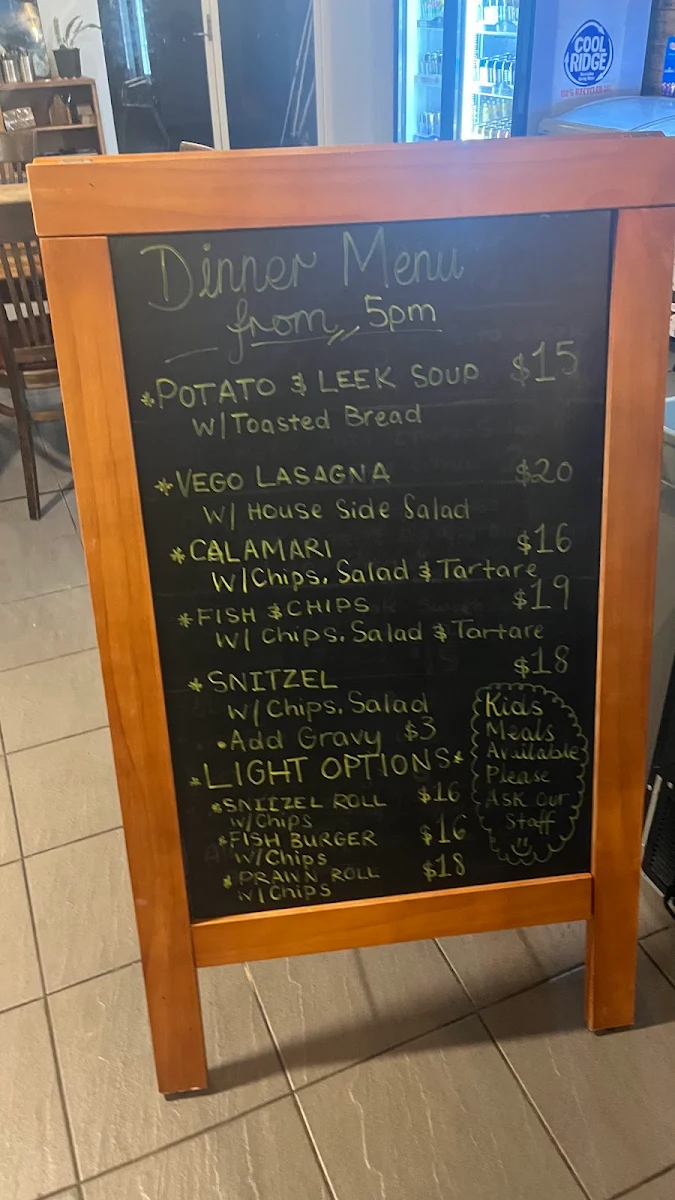 COOL
RIDGE
Dinner Menu
from 5pm
*POTATO & LEEK SOUP $15
w/Toasted Bread
*VEGO LASAGNA $20
w/ House Side Salad
*CALAMARI $16
w/Chips. Salad & Tartare
*FISH & CHIPS $19
w/ Chips. Salad & Tartare
*SNITZEL $18
w/Chips. Salad
•Add Gravy $3
*LIGHT OPTIONS*
*SNITZEL ROLL $16
w/Chips
*FISH BURGER $16
w/Chips
*PRAWN ROLL $18
w/Chips
Kids
Meals
Available
Please
Ask our
Staff